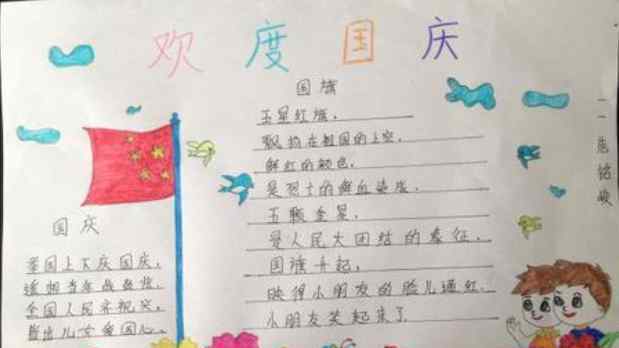 欢度国庆
国旗
五星红旗，
飘扬在祖国的上空，
鲜红的颜色，
是烈士的鲜血染成，
五颗金星，
是人民大团结的象征，
国旗升起，
映得小朋友的脸儿通红，
小朋友笑起来了
国庆
举国上下庆国庆，
全国人民齐祝兴，
儿女爱国心，